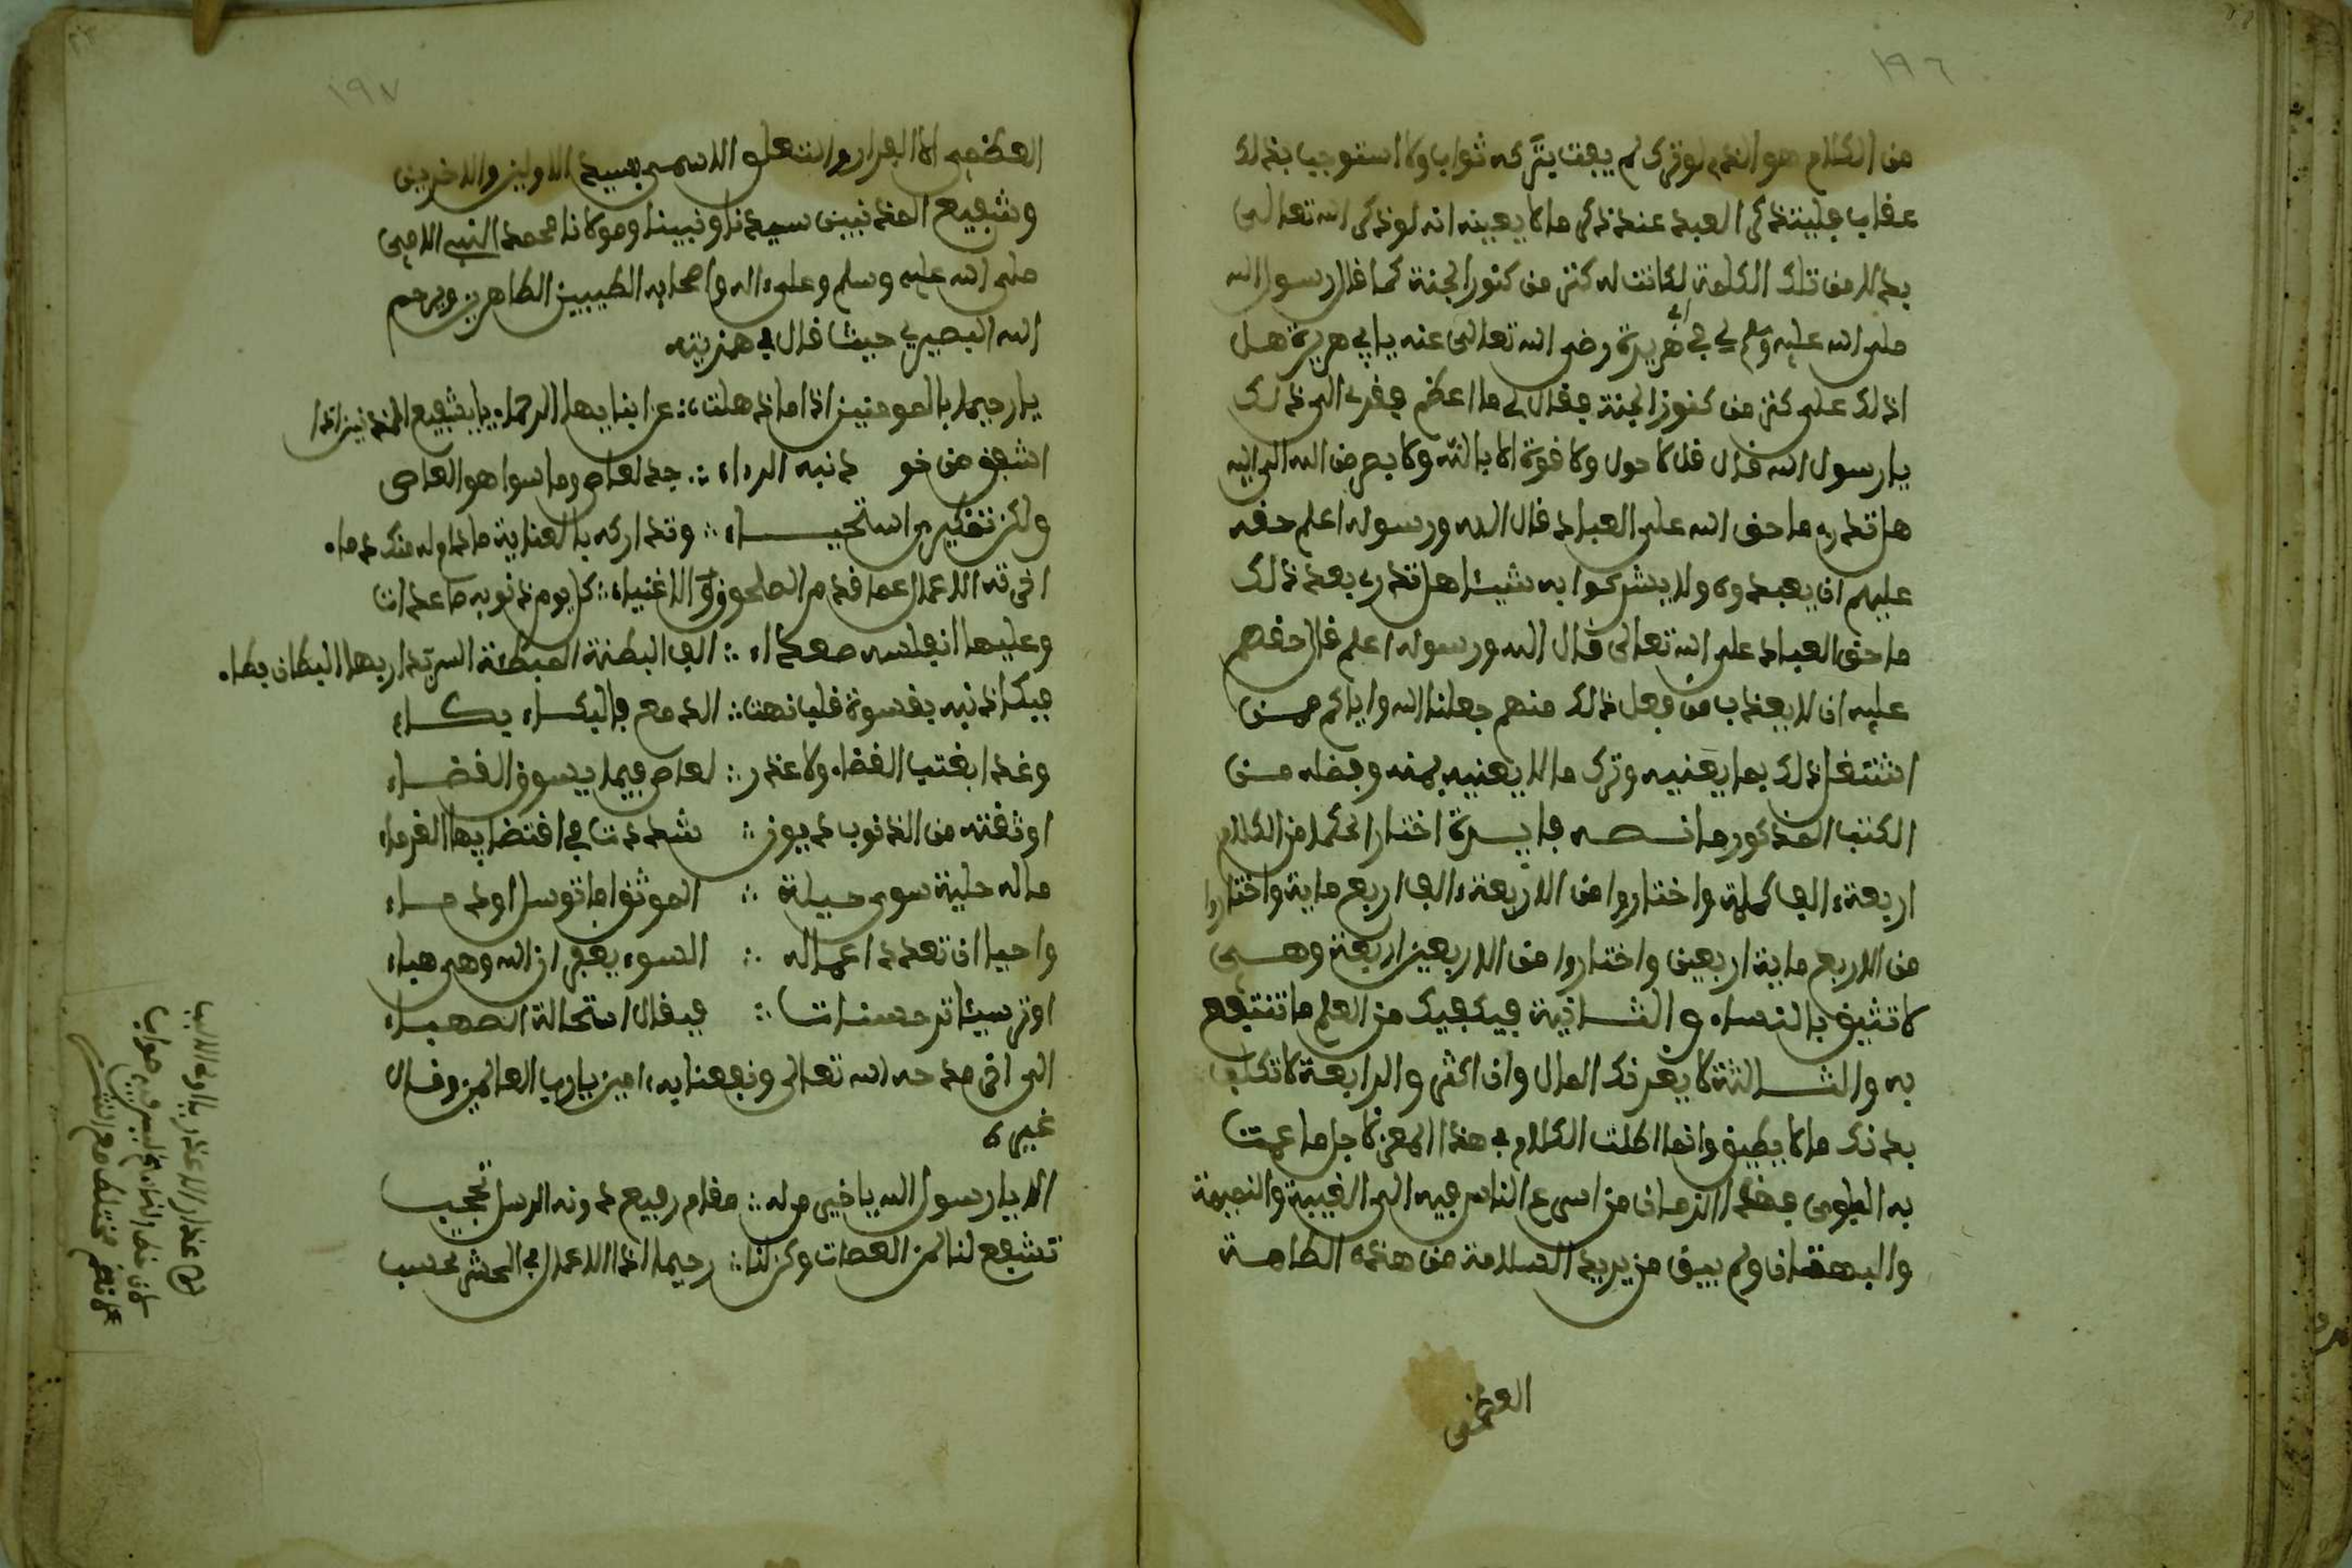 ١٩٦
من الكلام هو الذي لو ترك لم يفت بتركه ثواب ولا استوجب بذلك
عقاب فليتذكر العبد عند ذكر ما لا يعنيه انه لو ذكر الله تعالى
بدلا من تلك الكلمة لكانت له كنز من كنوز الجنة كما قال رسول الله
صلى الله عليه وسلم لي في أبي هريرة رضي الله تعالى عنه يا ابي هريرة هل
ادلك على كنز من كنوز الجنة فقال لي ما اعظم فقري الى ذلك
يا رسول الله قال قل لا حول ولا قوة الا بالله ولا يعر من الله الا اليه
هل تدري ما حق الله على العباد قال الله ورسوله اعلم حقه
عليهم ان يعبدوه ولا يشركوا به شيئا هل تدري بعد ذلك
ما حق العباد على الله تعالى قال الله ورسوله اعلم قال حقهم
عليه ان لا يعذب من فعل ذلك منهم جعلنا الله واياكم ممن
اشتغل ذلك بما يعنيه وترك ما لا يعنيه بمنه وفضله من
الكتب المذكور ما نصه فايدة اختار الحكما من الكلام
اربعة الف كلمة واختاروا من الاربعة الف اربع ماية واختاروا
من الاربع ماية اربعين واختاروا من الاربعين اربعة وهي
لا تثيق بالنساء والثانية فيكفيك من العلم ما تنتفع
به والثالثة لا يغرنك المال وان اكثر والرابعة لا تكلف
بدنك ما لا يطيق وانما اطلت الكلام في هذا المعنى لاجل ما عمت
به البلوى فهذا الزمان من اسرع الناس فيه الى الغيبة والنميمة
والبهتان ولم يبق من يريد السلامة من هذه الطامة
العظمى
١٩٧
العظمى الا الفرار والتعلق الاسمى بسيد الاولين والاخرين
وشفيع المذنبين سيدنا ونبينا ومولانا محمد النبي الامي
صلى الله عليه وسلم وعلى اله واصحابه الطيبين الطاهرين ويرحم
الله البصيري حيث قال في همزيته
يا رحيما بالمومنين اذا ما ذهلت ∴ عن ابنايها الرحماء يا شفيع المذنبين اذا
اشفق من خو ذنبه البرداء ∴ جد لعاص وما سوا هو العاصي
ولكن تنكيري استحياء ∴ وتداركه بالعناية ما دام له منك ذماء
اخرته الاعمال عما قدم الصالحون والاغنياء ∴ كل يوم ذنوبه صاعدات
وعليها انفاسه صعداء ∴ الف البطنة المبطئة السير بدار بها البطان بطاء
فبكا ذنبه بقسوة قلب نهت ∴ الدمع فالبكاء بكاء
وغدا يعتب القضاء ولا عذر ∴ لعاص فيما يسوق القضاء
اوثقته من الذنوب ديون ∴ شددت في اقتضايها الغرماء
ماله حلية سوى حيلة ∴ الموثق اما توسل او دعاء
واحيا ان تعدد اعماله ∴ السوء يغفر ان الله وهي هباء
او ترى سيئاته حسنات ∴ فيقال استحالة الصهباء
الى اخر مدحه الله تعالى ونفعنا به امين يا رب العالمين وقال
غيره
الا يا رسول الله يا خير من له ∴ مقام رفيع دونه الرسل تحجب
تشفع لنا نحن العصات وكن لنا ∴ رحيما اذا الاعمال في الحشر تحسب